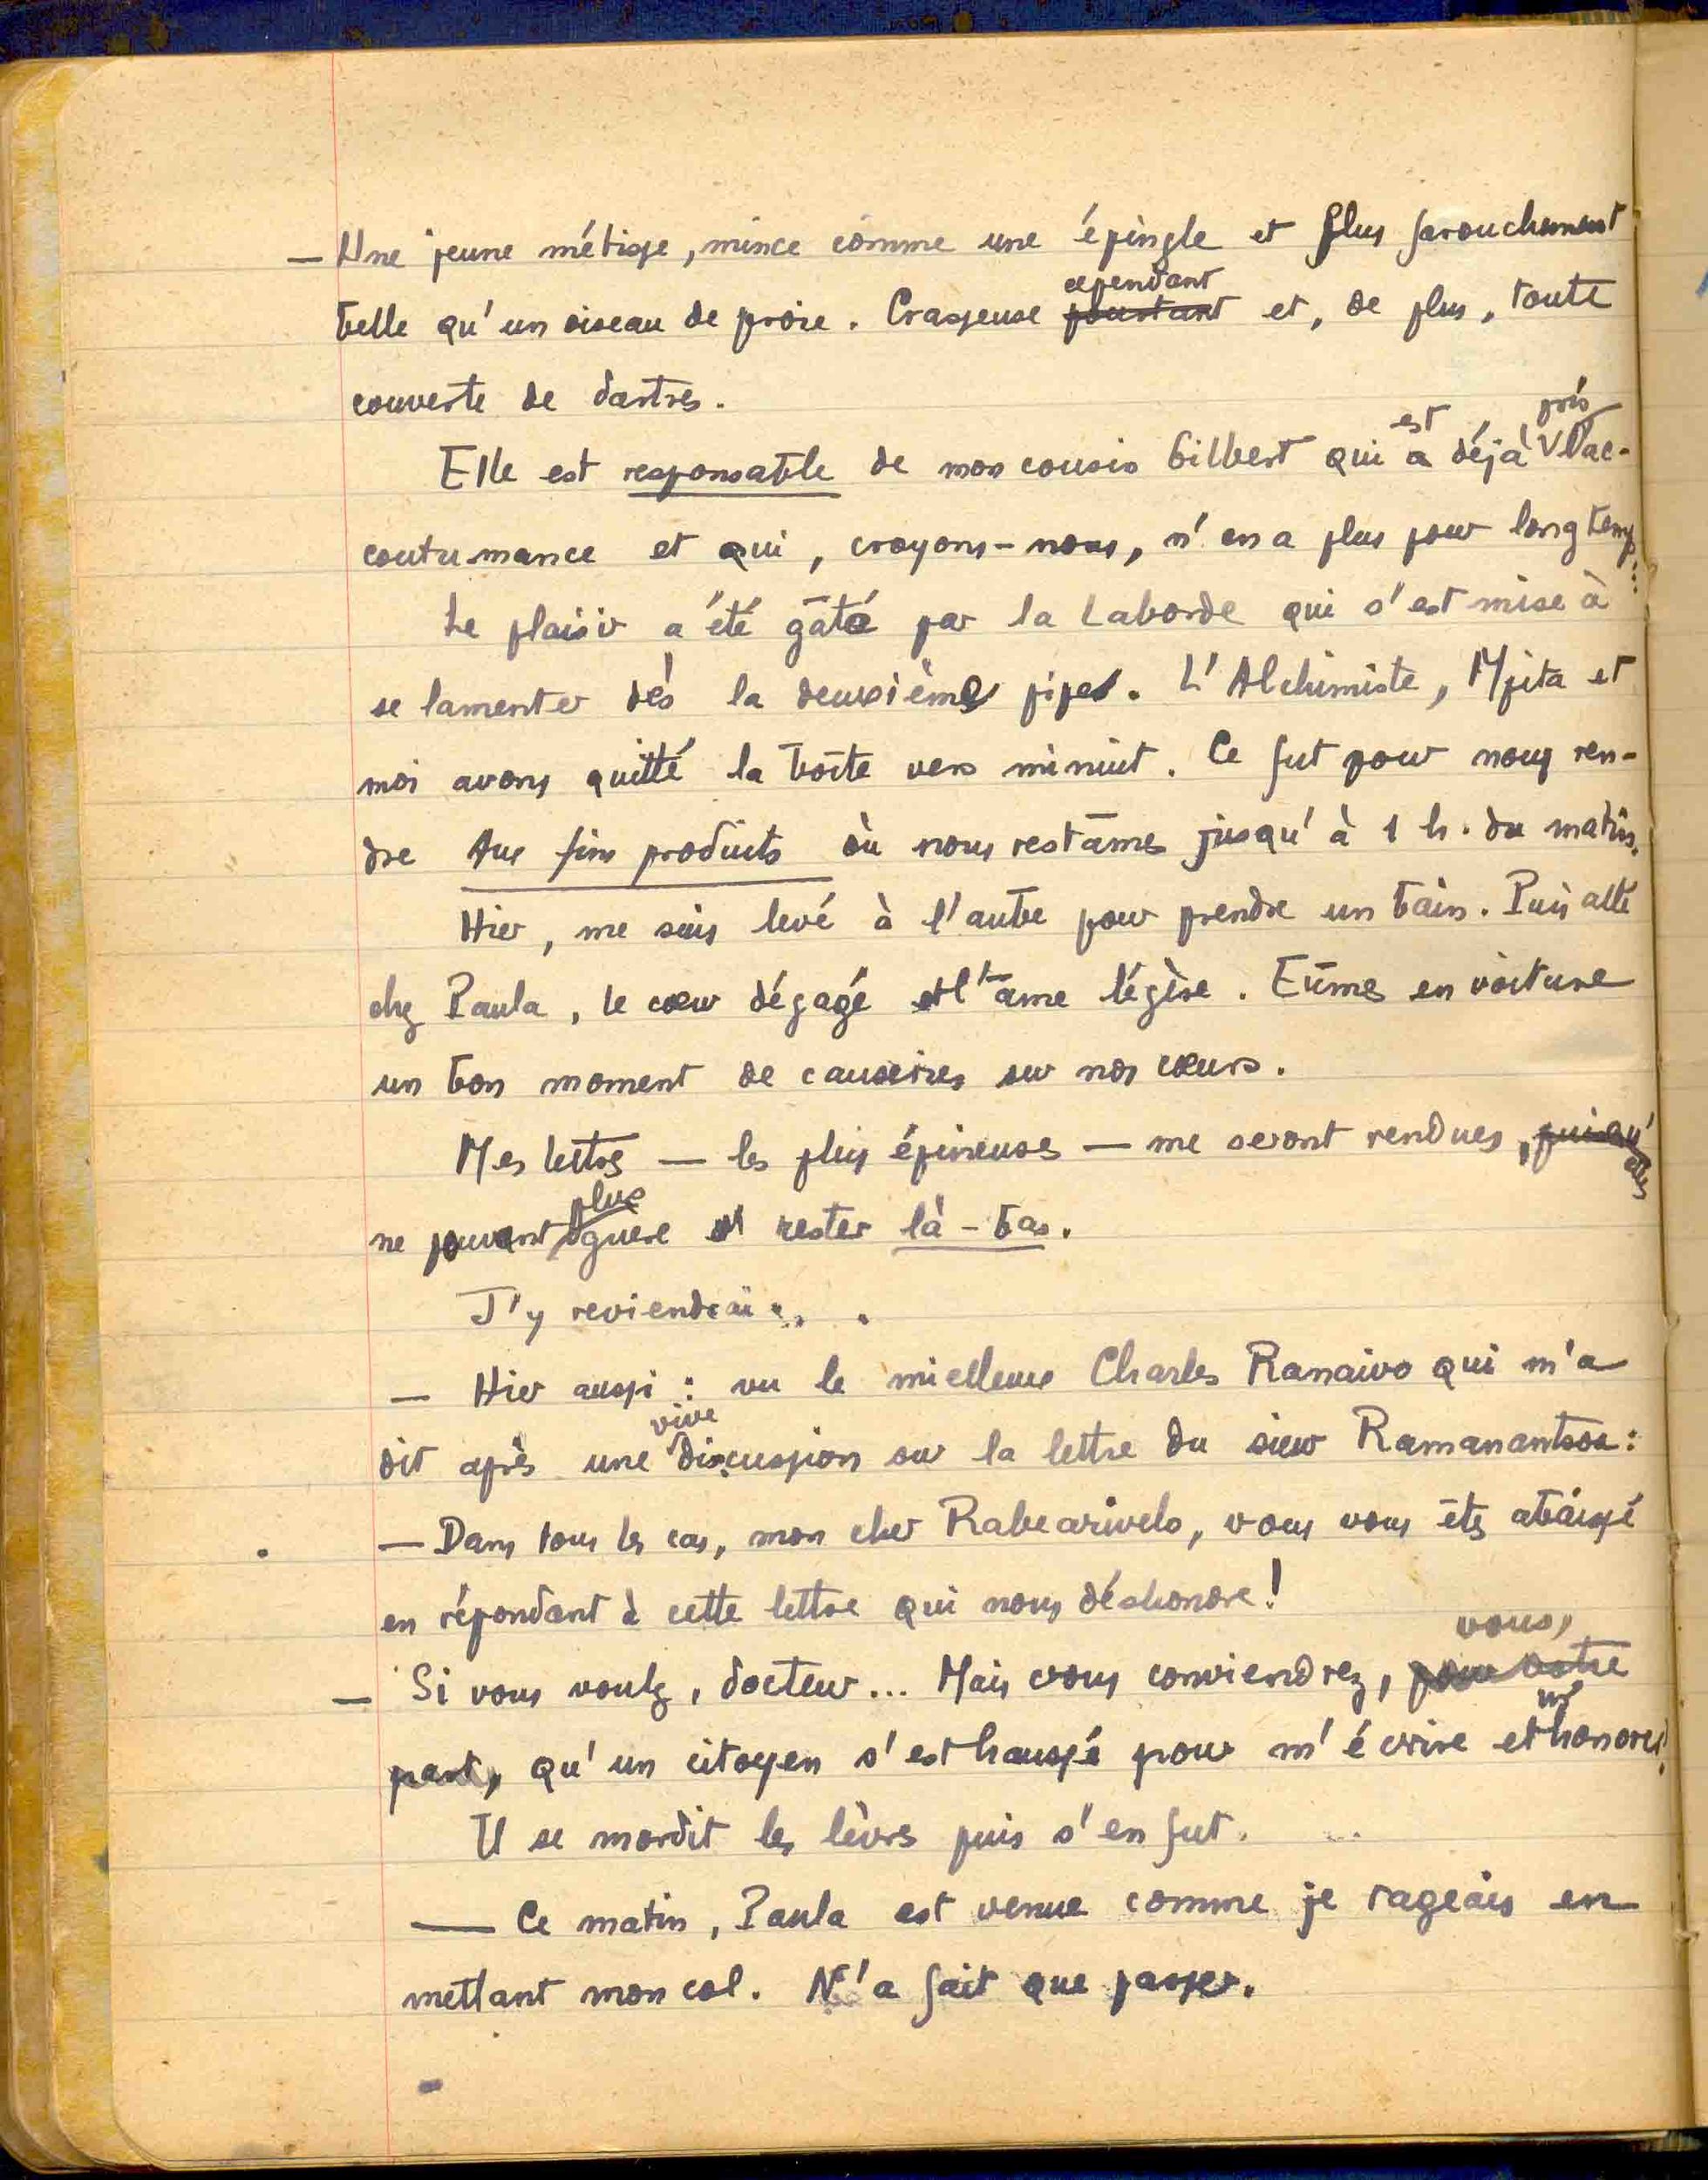 — Une jeune métisse, mince comme une épingle et plus farouchement
cependant
belle qu'un oiseau de proie. Crasseuse pourtant et, de plus, toute
couverte de dartres.
est pris
Elle est responsable de mon cousin Gilbert qui a déjà l'ac-
coutumance et qui, croyons-nous, n'en a plus pour longtemps...
Le plaisir a été gâté par la Laborde qui s'est mise à
se lamenter dès la deuxième pipe. L'Alchimiste, Mpita et
moi avons quitté la boîte vers minuit. Ce fut pour nous ren-
dre Aux fins produits où nous restâmes jusqu'à 1 h. du matin.
Hier, me suis levé à l'aube pour prendre un bain. Puis allé
chez Paula, le cœur dégagé et l'âme légère. Eûmes en voiture
un bon moment de causeries sur nos cœurs.
Mes lettres — les plus épineuses — me seront rendues, puisqu'elles
plus
ne pouvant guère rester là-bas.
J'y reviendrai...
— Hier aussi : vu le mielleux Charles Ranaivo qui m'a
vive
dit après une discussion sur la lettre du sieur Ramanantsoa :
— Dans tous les cas, mon cher Rabearivelo, vous vous êtes abaissé
en répondant à cette lettre qui nous déshonore !
vous,
— Si vous voulez, docteur... Mais vous conviendrez, pour votre
m'
part, qu'un citoyen s'est haussé pour m'écrire et honorer!
Il se mordit les lèvres puis s'en fut.
— Ce matin, Paula est venue comme je rageais en
mettant mon col. N'a fait que passer.